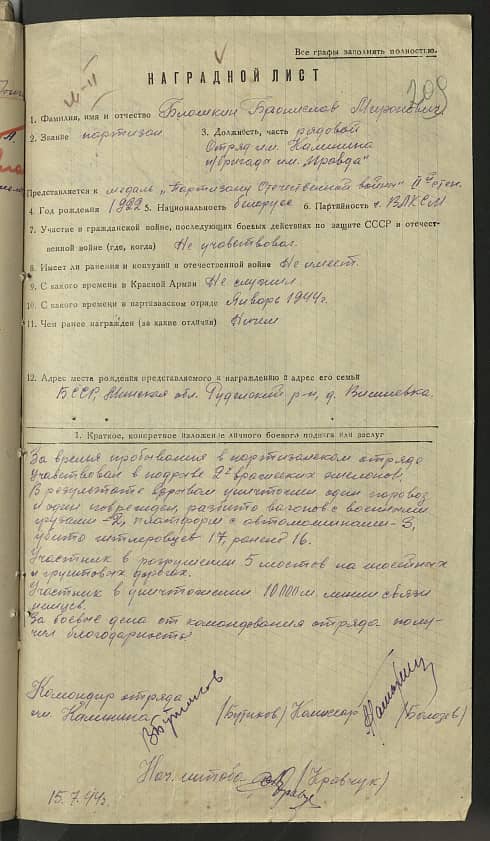 Все графы заполнять полностью.
НАГРАДНОЙ ЛИСТ
209
1. Фамилия, имя и отчество Блошкин Бронислав Миронович
2. Звание партизан 3. Должность, часть рядовой
Отряд им. Калинина
п/бригада им. "Правда"
Представляется к медаль "Партизану Отечественной войны" II й степ.
4. Год рождения 1922 5. Национальность белорус 6. Партийность ч. ВЛКСМ
7. Участие в гражданской войне, последующих боевых действиях по защите СССР и отечест-
венной войне (где, когда) Не учавствовал.
8. Имеет ли ранения и контузии в отечественной войне Не имеет.
9. С какого времени в Красной Армии Не служил
10. С какого времени в партизанском отряде Январь 1944 г.
11. Чем ранее награжден (за какие отличия) Ничем
12. Адрес места рождения представляемого к награждению и адрес его семьи
БССР, Минская обл. Руденский р-н, д. Вишневка.
1. Краткое, конкретное изложение личного боевого подвига или заслуг
За время пребывания в партизанском отряде
учавствовал в подрыве 2х вражеских эшелонов.
В результате взрывом уничтожен один паровоз
и один поврежден, разбито вагонов с военными
грузами - 2, платформ с автомашинами - 3,
убито гитлеровцев 17, ранено 16.
Участник в разрушении 5 мостов на шоссейных
и грунтовых дорогах.
Участник в уничтожении 10 000 м. линии связи
немцев.
За боевые дела от командования отряда полу-
чил благодарность
Командир отряда
им. Калинина (Бутиков) Комиссар
Нач. штаба (Кравчук)
15.7.44 г.